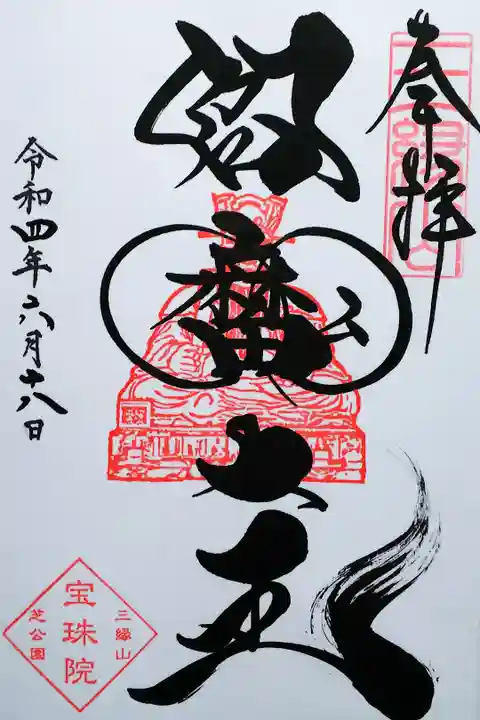 奉拝
三縁山
閻魔大王
令和四年六月十八日
三縁山
宝珠院
芝公園